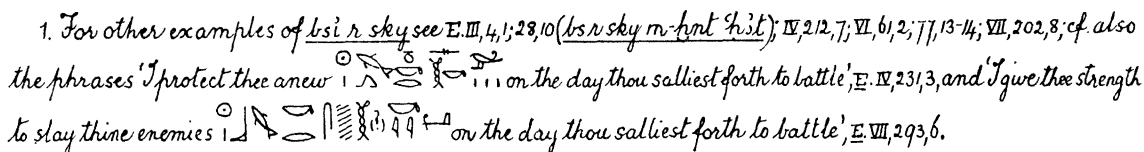 1. For other examples of bsỉ r sky see E.III,4,1; 28,10 (bsr sky m-ḫnt ḥꜣt); IV,212,7; VI,61,2; 77,13-14; VII,202,8; cf. also
the phrases 'I protect thee anew on the day thou salliest forth to battle', E.IV,231,3, and 'I give thee strength
to slay thine enemies on the day thou salliest forth to battle', E.VII,293,6.